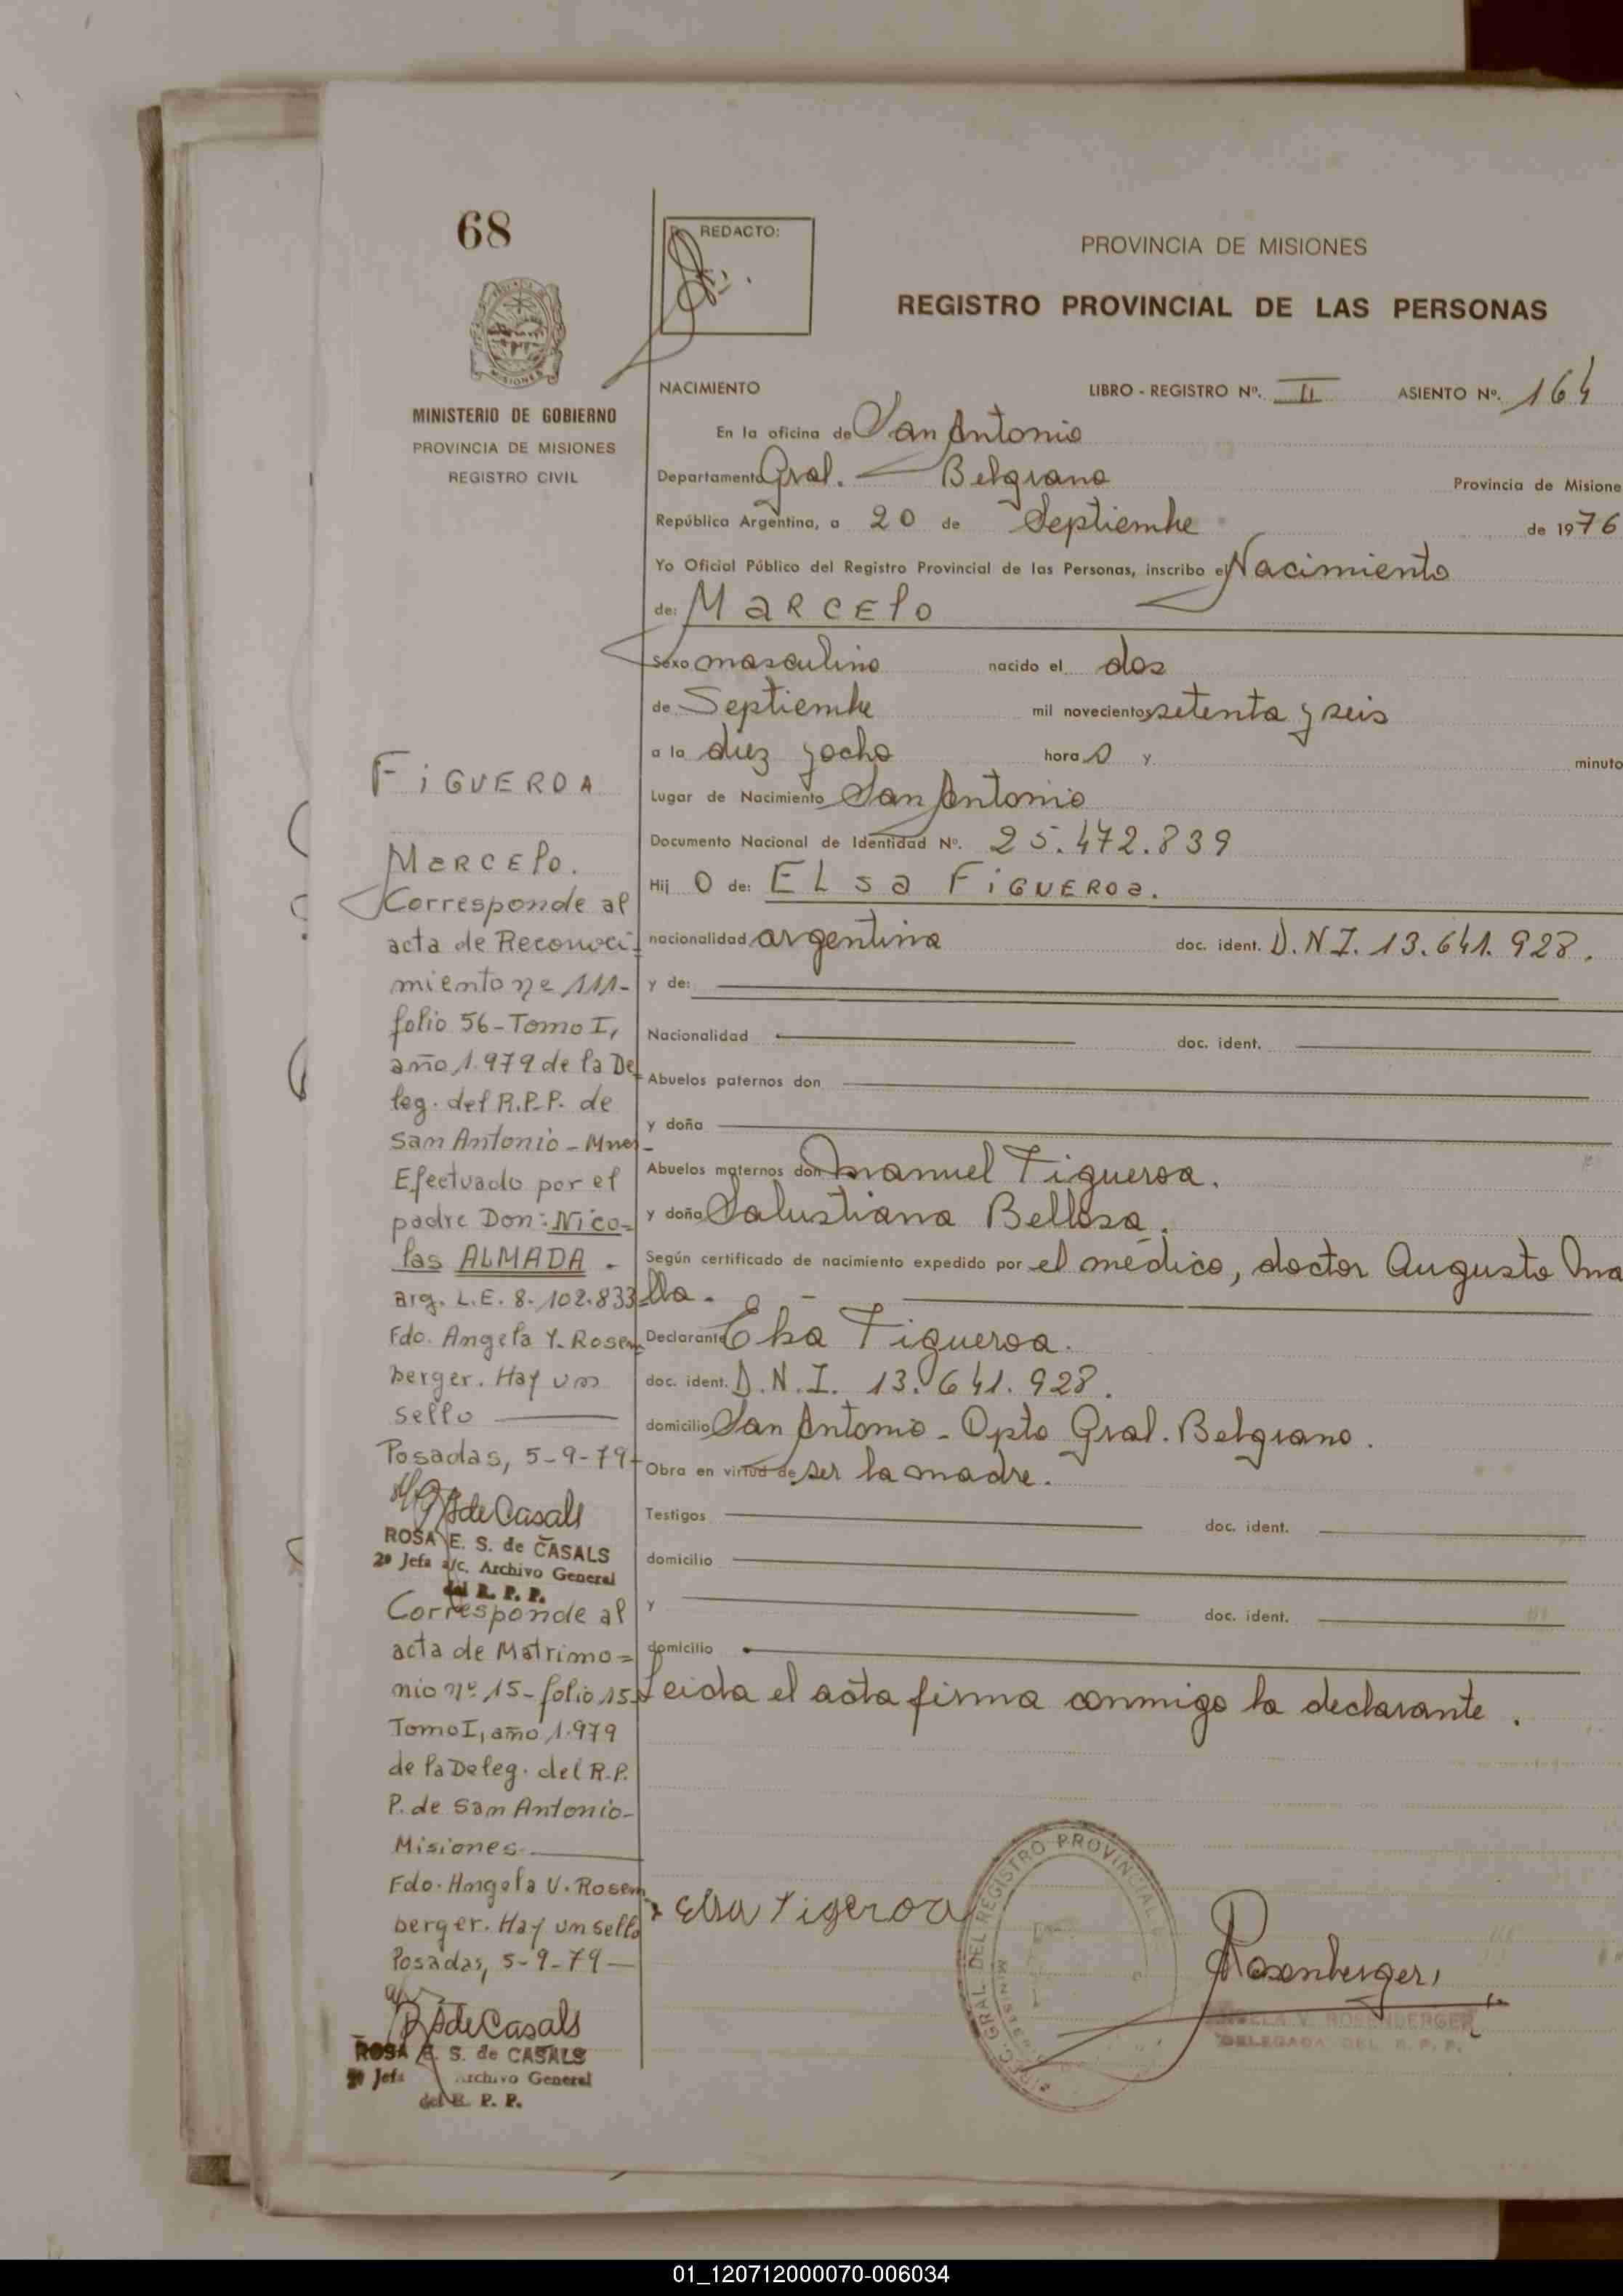 68
REDACTO:
PROVINCIA DE MISIONES
REGISTRO PROVINCIAL DE LAS PERSONAS
MISIONES
MINISTERIO DE GOBIERNO
PROVINCIA DE MISIONES
REGISTRO CIVIL
NACIMIENTO LIBRO - REGISTRO Nº. II ASIENTO Nº. 164
En la oficina de San Antonio
Departamento Gral. Belgrano Provincia de Misione
República Argentina, a 20 de Septiembre de 1976
Yo Oficial Público del Registro Provincial de las Personas, inscribo el Nacimiento
de: MARCElo
Sexo masculino nacido el dos
de Septiembre mil novecientos setenta y seis
a la diez y ocho hora 0 y minuto
Lugar de Nacimiento San Antonio
Documento Nacional de Identidad Nº. 25.472.839
Hij O de: ELsa FiGUEROa.
nacionalidad argentina doc. ident. D.N.I. 13.641.928.
y de:
Nacionalidad doc. ident.
Abuelos paternos don
y doña
Abuelos maternos don Manuel Figueroa.
y doña Salustiana Bellosa.
Según certificado de nacimiento expedido por el médico, doctor Augusto Ma
lla.
Declarante Elsa Figueroa.
doc. ident. D.N.I. 13.641.928.
domicilio San Antonio - Dpto Gral. Belgrano.
Obra en virtud de ser la madre.
Testigos doc. ident.
domicilio
y doc. ident.
domicilio
Leida el acta firma conmigo la declarante.
Elsa Figeroa
Rosenberger
ANGELA V. ROSENBERGER
DELEGADA DEL R. P. P.
DIREC. GRAL. DEL REGISTRO PROVINCIAL
FiGUEROA
MARCElo.
Corresponde al
acta de Reconoci-
miento nº 111-
folio 56-Tomo I,
año 1.979 de la De-
leg. del R.P.P. de
San Antonio - Mnes-
Efectuado por el
padre Don: Nico=
las ALMADA.
arg. L.E. 8.102.833-
Fdo. Angela Y. Rosem
berger. Hay un
sello
Posadas, 5-9-79-
RSdeCasals
ROSA E. S. de CASALS
2º Jefa a/c. Archivo General
del R. P. P.
Corresponde al
acta de Matrimo=
nio nº 15-folio 15-
Tomo I, año 1.979
de la Deleg. del R.P.
P. de San Antonio-
Misiones
Fdo. Angela V. Rosem
berger. Hay un sello
Posadas, 5-9-79-
RSdeCasals
ROSA E. S. de CASALS
2º Jefa Archivo General
del R. P. P.
01_120712000070-006034